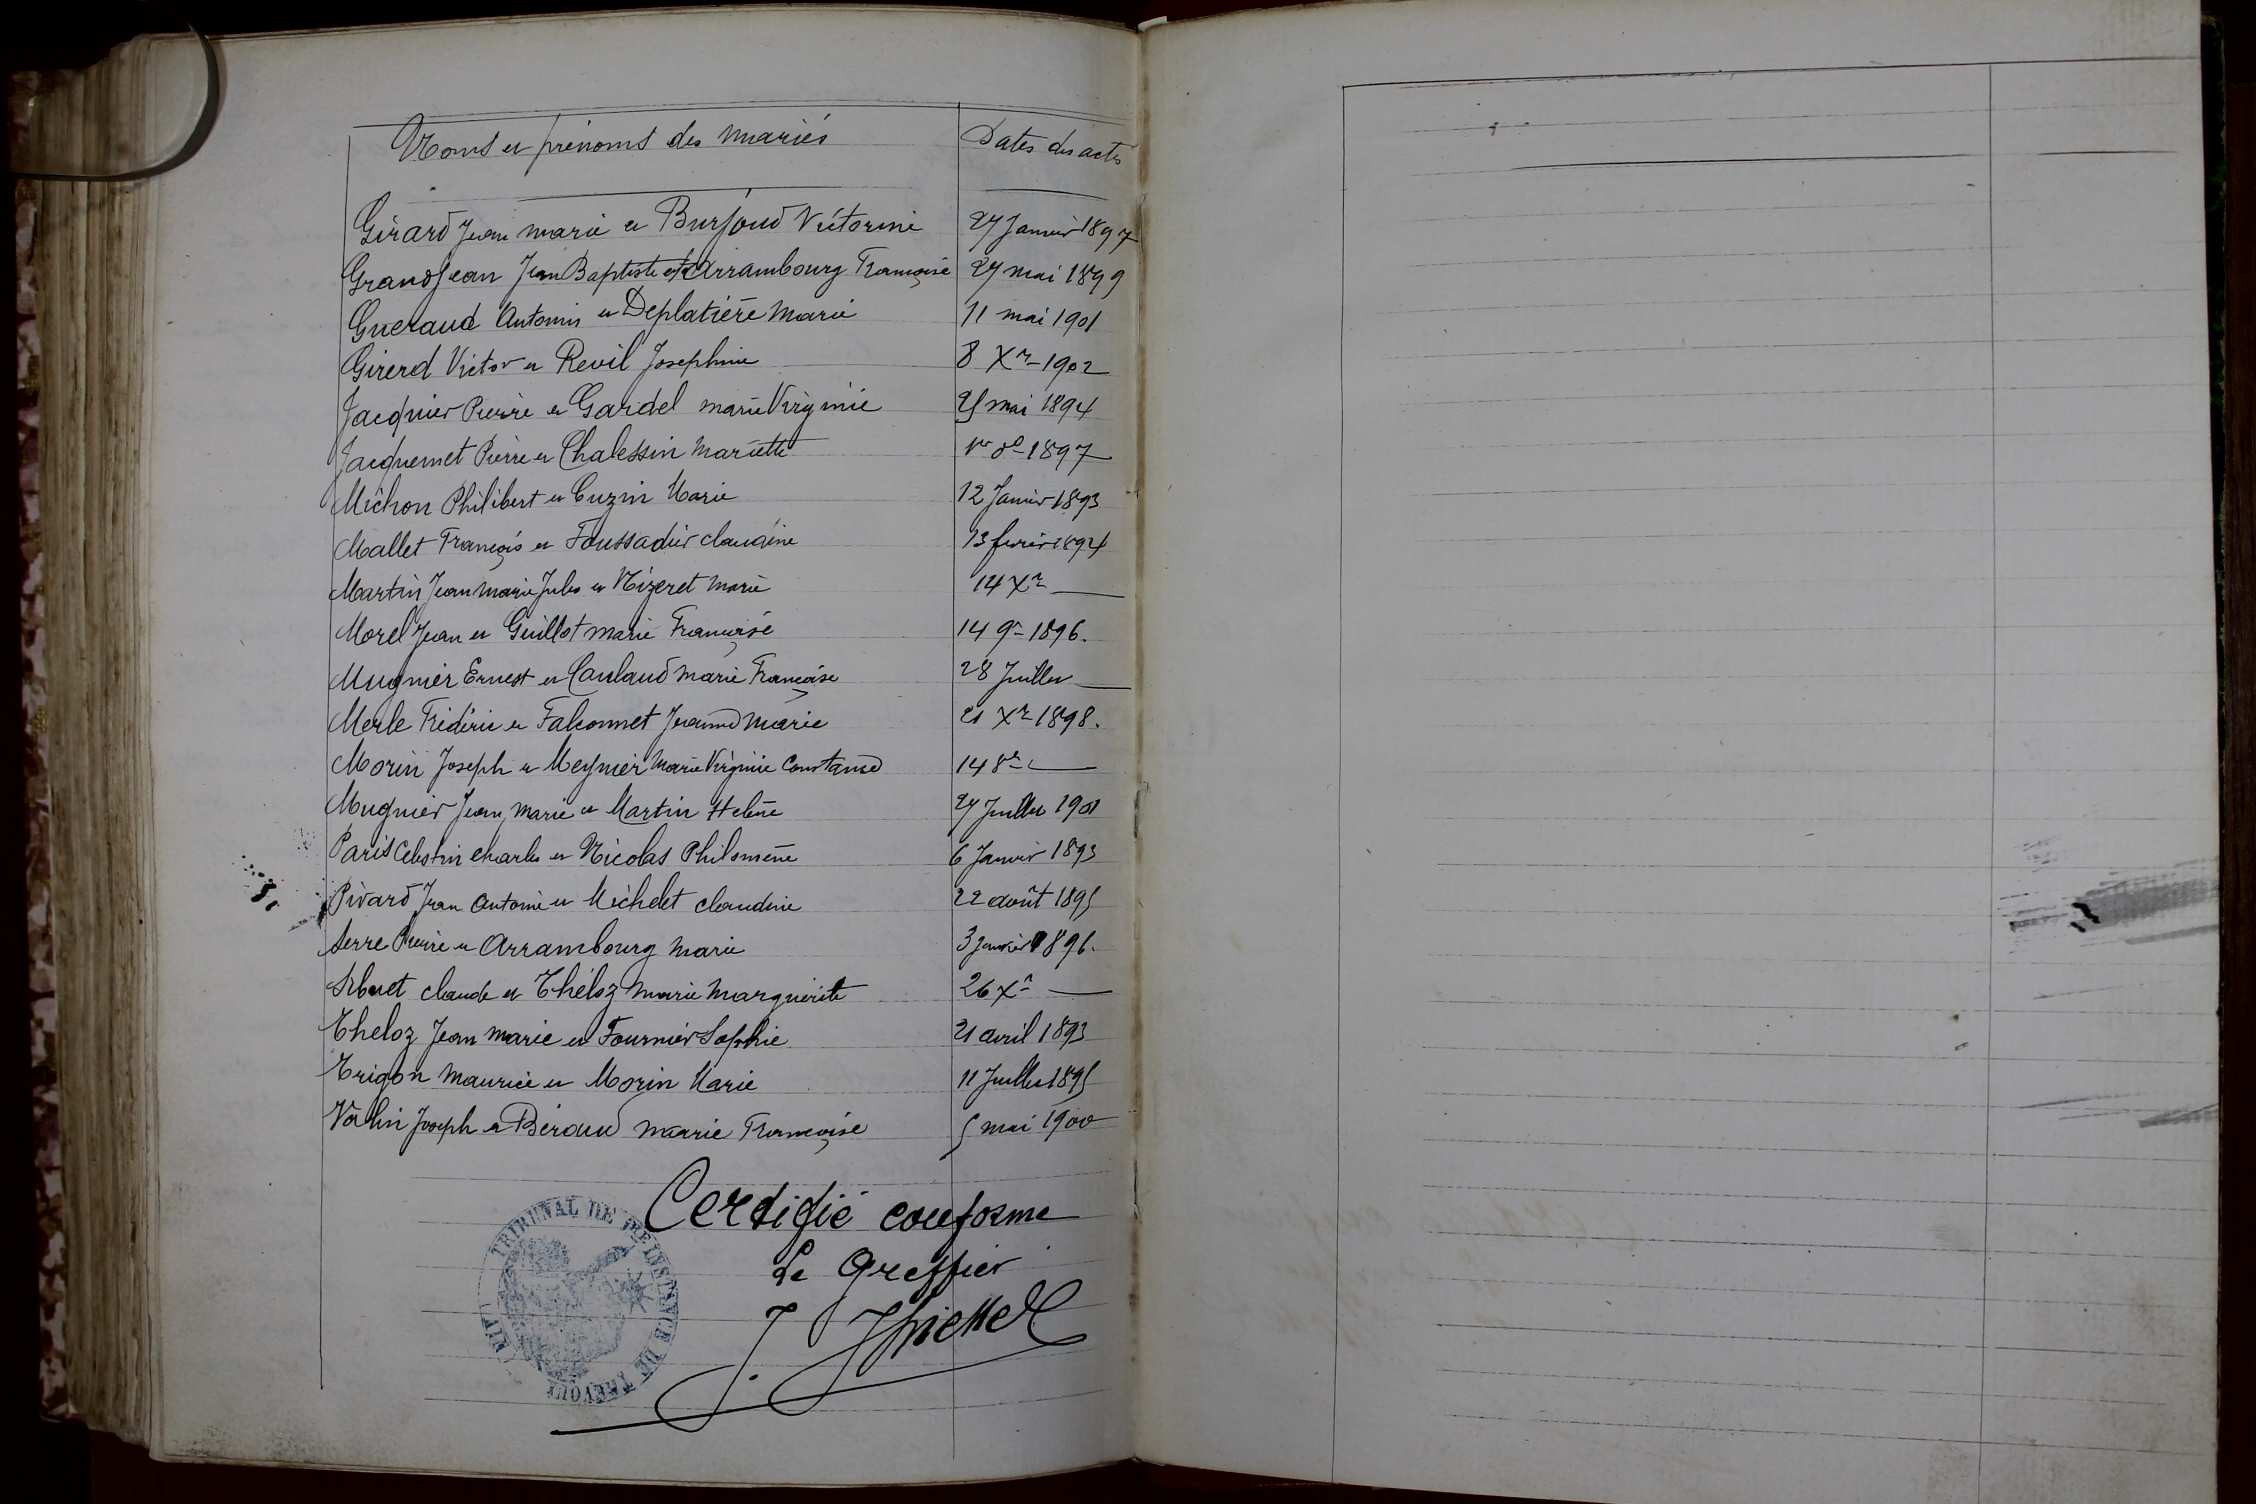 Noms et prénoms des mariés Dates des actes
Girard Jean Marie et Burjoud Victorine 27 Janvier 1897
Grandjean Jean Baptiste et Arrambourg Françoise 27 mai 1899
Gueraud Antonin et Deplatière Marie 11 mai 1901
Girerd Victor et Revil Josephine 8 Xre 1902
Jacquier Pierre et Gardel Marie Virginie 25 mai 1894
Jacquemet Pierre et Chalessin Mariette 1er do 1897
Michon Philibert et Cuzin Marie 12 Janvier 1893
Mallet François et Foussadier Claudine 13 fevrier 1894
Martin Jean Marie Jules et Nizeret Marie 14 Xre —
Morel Jean et Guillot Marie Françoise 14 9re 1896.
Mugnier Ernest et Caulaud Marie Françoise 28 Juillet —
Merle Frédéric et Falconnet Jeanne Marie 21 Xre 1898.
Morin Joseph et Meynier Marie Virginie Constance 14 8re —
Mugnier Jean Marie et Martin Helène 27 Juillet 1901
Paris Celestin Charles et Nicolas Philomène 6 Janvier 1893
Pivard Jean Antoine et Michelet Claudine 22 août 1895
Serre Pierre et Arrambourg Marie 3 janvier 1896.
Sibuet Claude et Théloz Marie Marguerite 26 Xre —
Theloz Jean Marie et Fournier Sophie 21 avril 1893
Trigon Maurice et Morin Marie 11 Juillet 1895
Volin Joseph et Béroud Marie Françoise 5 mai 1900
Certifié conforme
Le Greffier
TRIBUNAL DE 1RE INSTANCE DE TREVOUX (AIN)